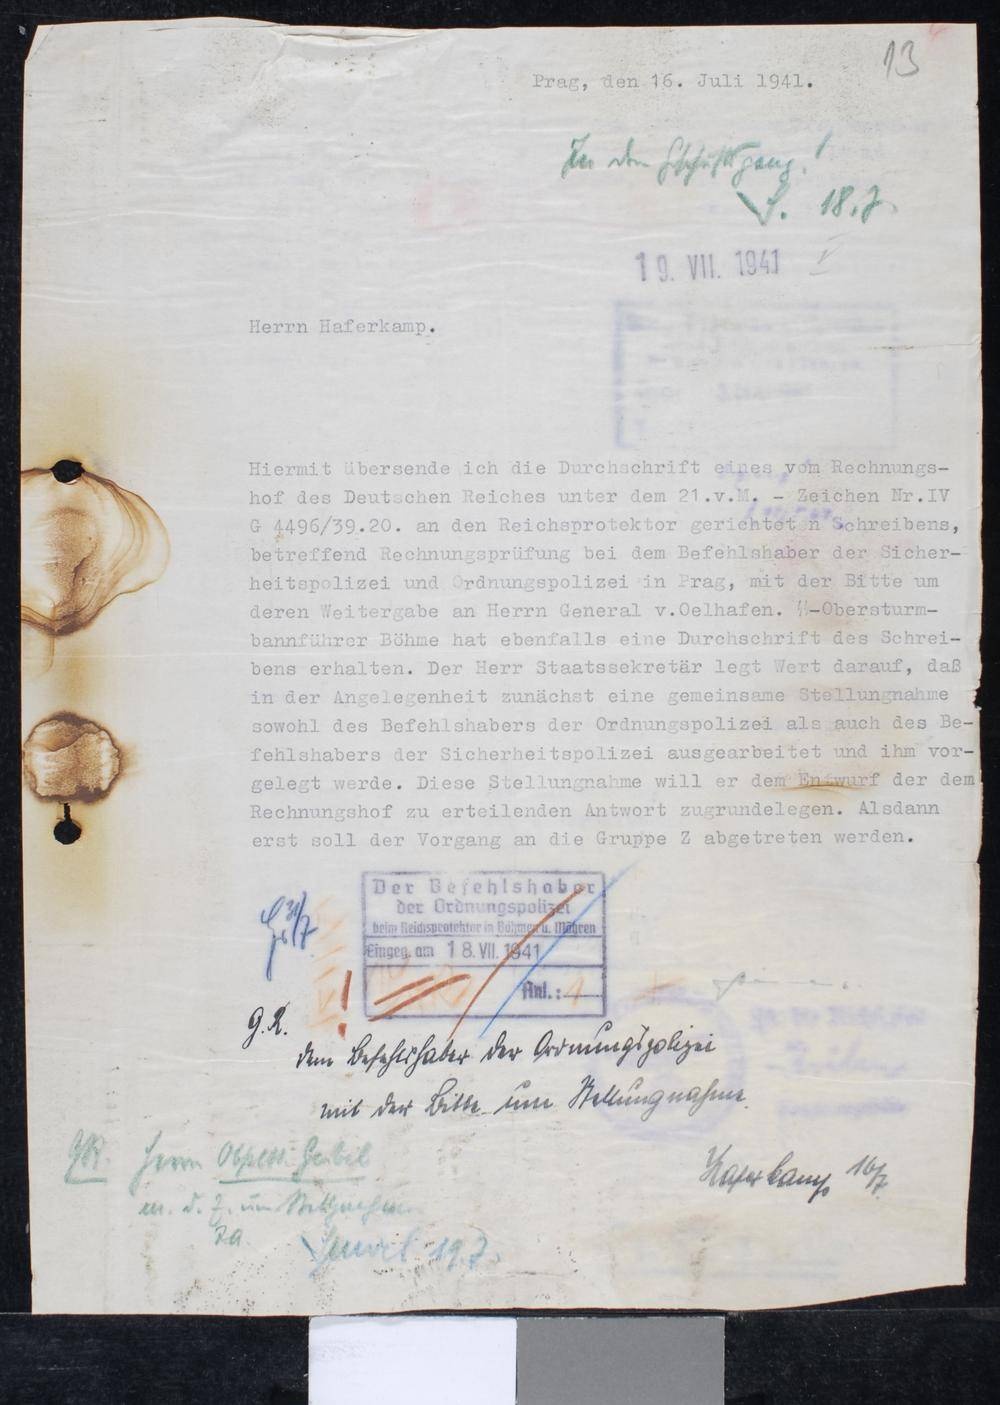 13
Prag, den 16. Juli 1941.
In den Geschäftsgang!
18.7.
19. VII. 1941
Herrn Haferkamp.
Hiermit übersende ich die Durchschrift eines vom Rechnungs-
hof des Deutschen Reiches unter dem 21.v.M. - Zeichen Nr.IV
G 4496/39.20. an den Reichsprotektor gerichteten Schreibens,
betreffend Rechnungsprüfung bei dem Befehlshaber der Sicher-
heitspolizei und Ordnungspolizei in Prag, mit der Bitte um
deren Weitergabe an Herrn General v.Oelhafen. ᛋᛋ-Obersturm-
bannführer Böhme hat ebenfalls eine Durchschrift des Schrei-
bens erhalten. Der Herr Staatssekretär legt Wert darauf, daß
in der Angelegenheit zunächst eine gemeinsame Stellungnahme
sowohl des Befehlshabers der Ordnungspolizei als auch des Be-
fehlshabers der Sicherheitspolizei ausgearbeitet und ihm vor-
gelegt werde. Diese Stellungnahme will er dem Entwurf der dem
Rechnungshof zu erteilenden Antwort zugrundelegen. Alsdann
erst soll der Vorgang an die Gruppe Z abgetreten werden.
Der Befehlshaber
der Ordnungspolizei
beim Reichsprotektor in Böhmen u. Mähren
Eingeg. am 18. VII. 1941
Anl.: 1
31/7
g.R.
dem Befehlshaber der Ordnungspolizei
mit der Bitte um Stellungnahme.
Haferkamp 16/7
gR. Herrn
m. d. B. um
19.7.